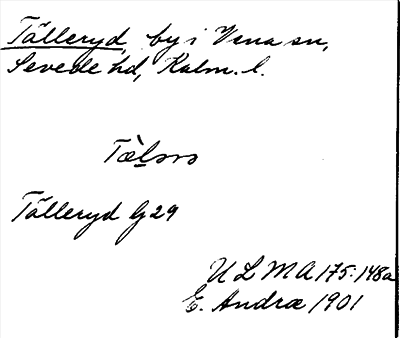 Tälleryd, by i Vena sn,
Sevede hd, Kalm. l.
Tälleryd G 29
ULMA 175:148a
E. Andræ 1901